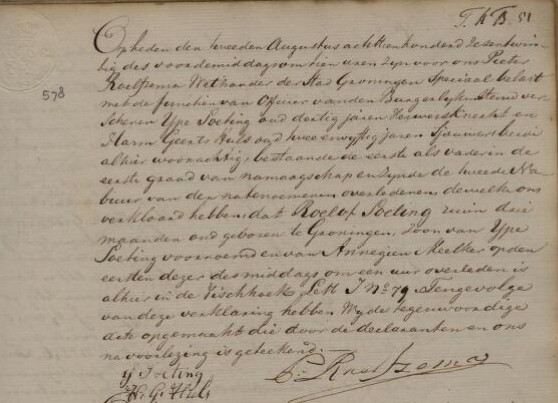 T. K. B. 51
578
Op heden den tweeden Augustus achttienhonderd zesentwin-
tig des voordemiddags om tien uren zyn voor ons Pieter
Roelfsema Wethouder der Stad Groningen Speciaal belast
met de functien van Officier van den Burgerlyken Stand ver-
schenen Ype Soeting oud dertig jaren Zeywersknecht en
Harm Geerts Huls oud twee en vyftig jaren Sjouwer beide
alhier woonachtig, bestaande de eerste als vader in de
eerste graad van namaagschap en zynde de tweede Na-
buur van den natenoemenen overledenen, dewelke ons
verklaard hebben, dat Roelof Soeting ruim drie
maanden oud geboren te Groningen, Zoon van Ype
Soeting voornoemd en van Annegien Meelker op den
eersten dezer des middags om een uur overleden is
alhier in de Vischhoek Lett I No 79 Tengevolge
van deze verklaring hebben Wy de tegenwoordige
acte opgemaakt die door de declaranten en ons
na voorlezing is geteekend.
Y Soeting
P. Roelfsema
H. G. Huls